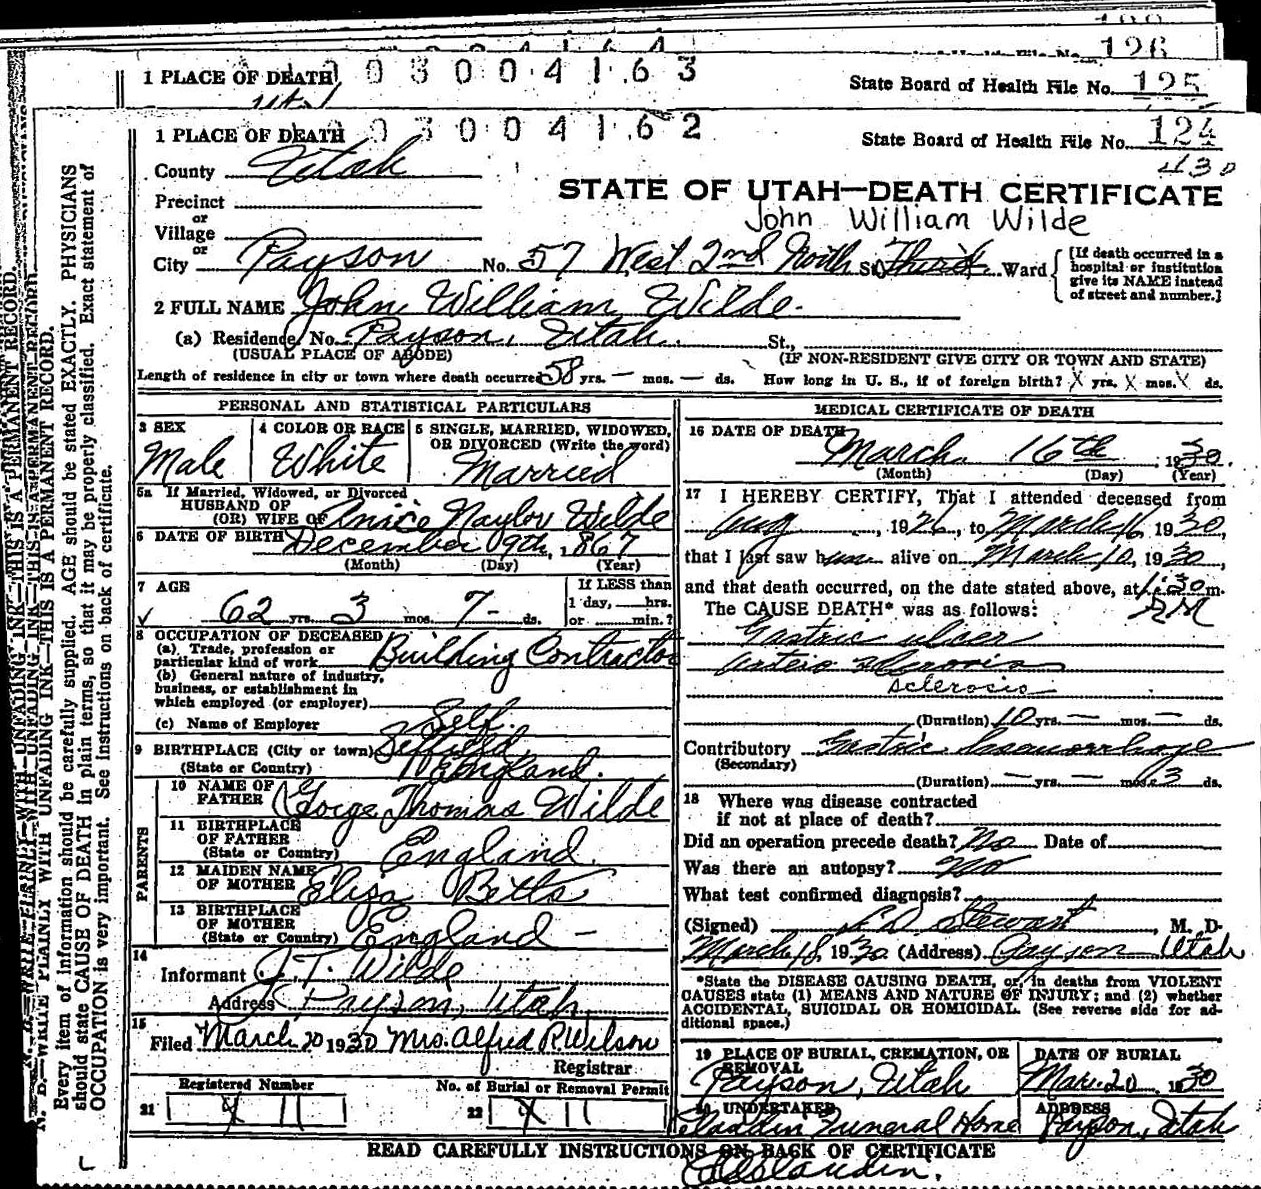 126
1 PLACE OF DEATH
0 0 3 0 0 4 1 6 3
State Board of Health File No. 125
1 PLACE OF DEATH
0 3 0 0 4 1 6 2
State Board of Health File No. 124
430
County Utah
STATE OF UTAH—DEATH CERTIFICATE
Precinct
or
John William Wilde
Village
or
City Payson No. 57 West 2nd North St. Third Ward
[If death occurred in a hospital or institution give its NAME instead of street and number.]
2 FULL NAME John William Wilde.
(a) Residence, No. Payson, Utah. St.,
(USUAL PLACE OF ABODE) (IF NON-RESIDENT GIVE CITY OR TOWN AND STATE)
Length of residence in city or town where death occurred 58 yrs. — mos. — ds. How long in U. S., if of foreign birth? X yrs. X mos. X ds.
PERSONAL AND STATISTICAL PARTICULARS
3 SEX
Male
4 COLOR OR RACE
White
5 SINGLE, MARRIED, WIDOWED,
OR DIVORCED (Write the word)
Married
5a If Married, Widowed, or Divorced
HUSBAND OF
(OR) WIFE OF Anice Naylor Wilde
6 DATE OF BIRTH December 9th, 1867
(Month) (Day) (Year)
7 AGE
62 yrs. 3 mos. 7 ds.
If LESS than
1 day, hrs.
or min.?
8 OCCUPATION OF DECEASED
(a) Trade, profession or
particular kind of work Building Contractor
(b) General nature of industry,
business, or establishment in
which employed (or employer)
(c) Name of Employer Self.
9 BIRTHPLACE (City or town)
(State or Country) England.
PARENTS
10 NAME OF
FATHER Gorge Thomas Wilde
11 BIRTHPLACE
OF FATHER
(State or Country) England.
12 MAIDEN NAME
OF MOTHER Eliza Betts
13 BIRTHPLACE
OF MOTHER
(State or Country) England —
14
Informant J. T. Wilde
Address Payson, Utah.
15
Filed March 20 1930 Mrs. Alfred P. Wilson
Registrar
Registered Number
21
No. of Burial or Removal Permit
22
MEDICAL CERTIFICATE OF DEATH
16 DATE OF DEATH
March 16th, 1930.
(Month) (Day) (Year)
17 I HEREBY CERTIFY, That I attended deceased from
Aug, 1926, to March 16 1930,
that I last saw him alive on March 10, 1930,
and that death occurred, on the date stated above, at 1:30 m.
The CAUSE DEATH* was as follows: P.M
Gastric ulcer
Arterio sclerosis
sclerosis
(Duration) 10 yrs. — mos. — ds.
Contributory Gastric
(Secondary)
(Duration) — yrs. — mos. 3 ds.
18 Where was disease contracted
if not at place of death?
Did an operation precede death? No Date of
Was there an autopsy? No
What test confirmed diagnosis?
(Signed) L. D. Stewart, M. D.
March 18, 1930 (Address) Payson Utah
*State the DISEASE CAUSING DEATH, or, in deaths from VIOLENT
CAUSES state (1) MEANS AND NATURE OF INJURY; and (2) whether
ACCIDENTAL, SUICIDAL OR HOMICIDAL. (See reverse side for ad-
ditional space.)
19 PLACE OF BURIAL, CREMATION, OR
REMOVAL
Payson, Utah
DATE OF BURIAL
Mar. 20 1930
20 UNDERTAKER
Claudin Funeral Home
ADDRESS
Payson, Utah
READ CAREFULLY INSTRUCTIONS ON BACK OF CERTIFICATE
N. B.—WRITE PLAINLY WITH UNFADING INK—THIS IS A PERMANENT RECORD.
Every item of information should be carefully supplied. AGE should be stated EXACTLY. PHYSICIANS
should state CAUSE OF DEATH in plain terms, so that it may be properly classified. Exact statement of
OCCUPATION is very important. See instructions on back of certificate.